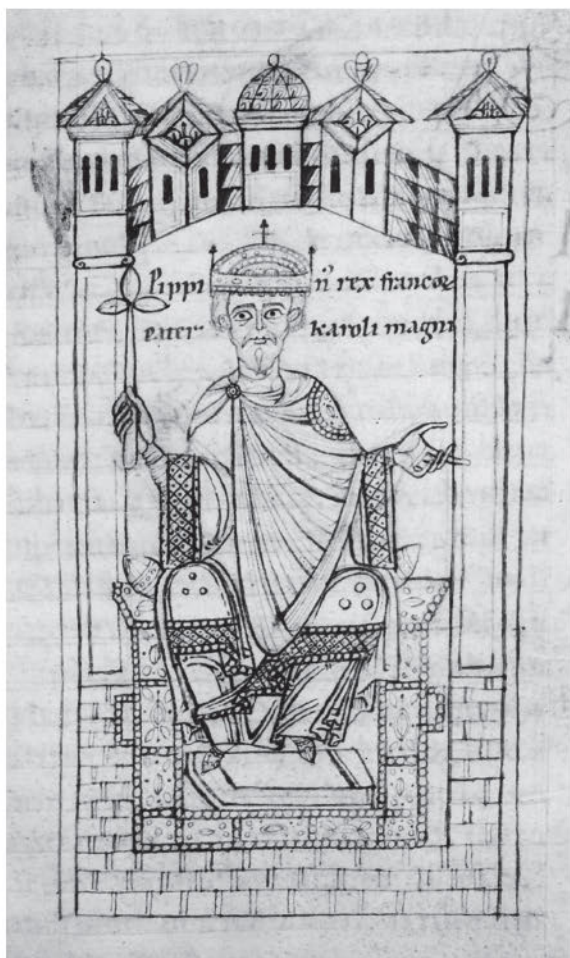 Pippin̄ rex francoꝝ
Pater karoli magni